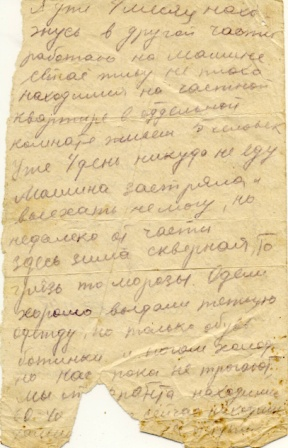 Я уже месяц нахо
жусь в другой части
работаю на машине
сейчас живу не плохо
находимся на частной
квартире в отдельной
комнате живем человек
Уже день никуда не еду
Машина застряла и
выехать не могу, но
недалеко от части
здесь зима скверная, то
грязь то морозы. Одели
хорошо выдали теплую
одежду, но только обув
ботинки и ногам холод
но нас пока не трогают.
Мы от фронта находимся